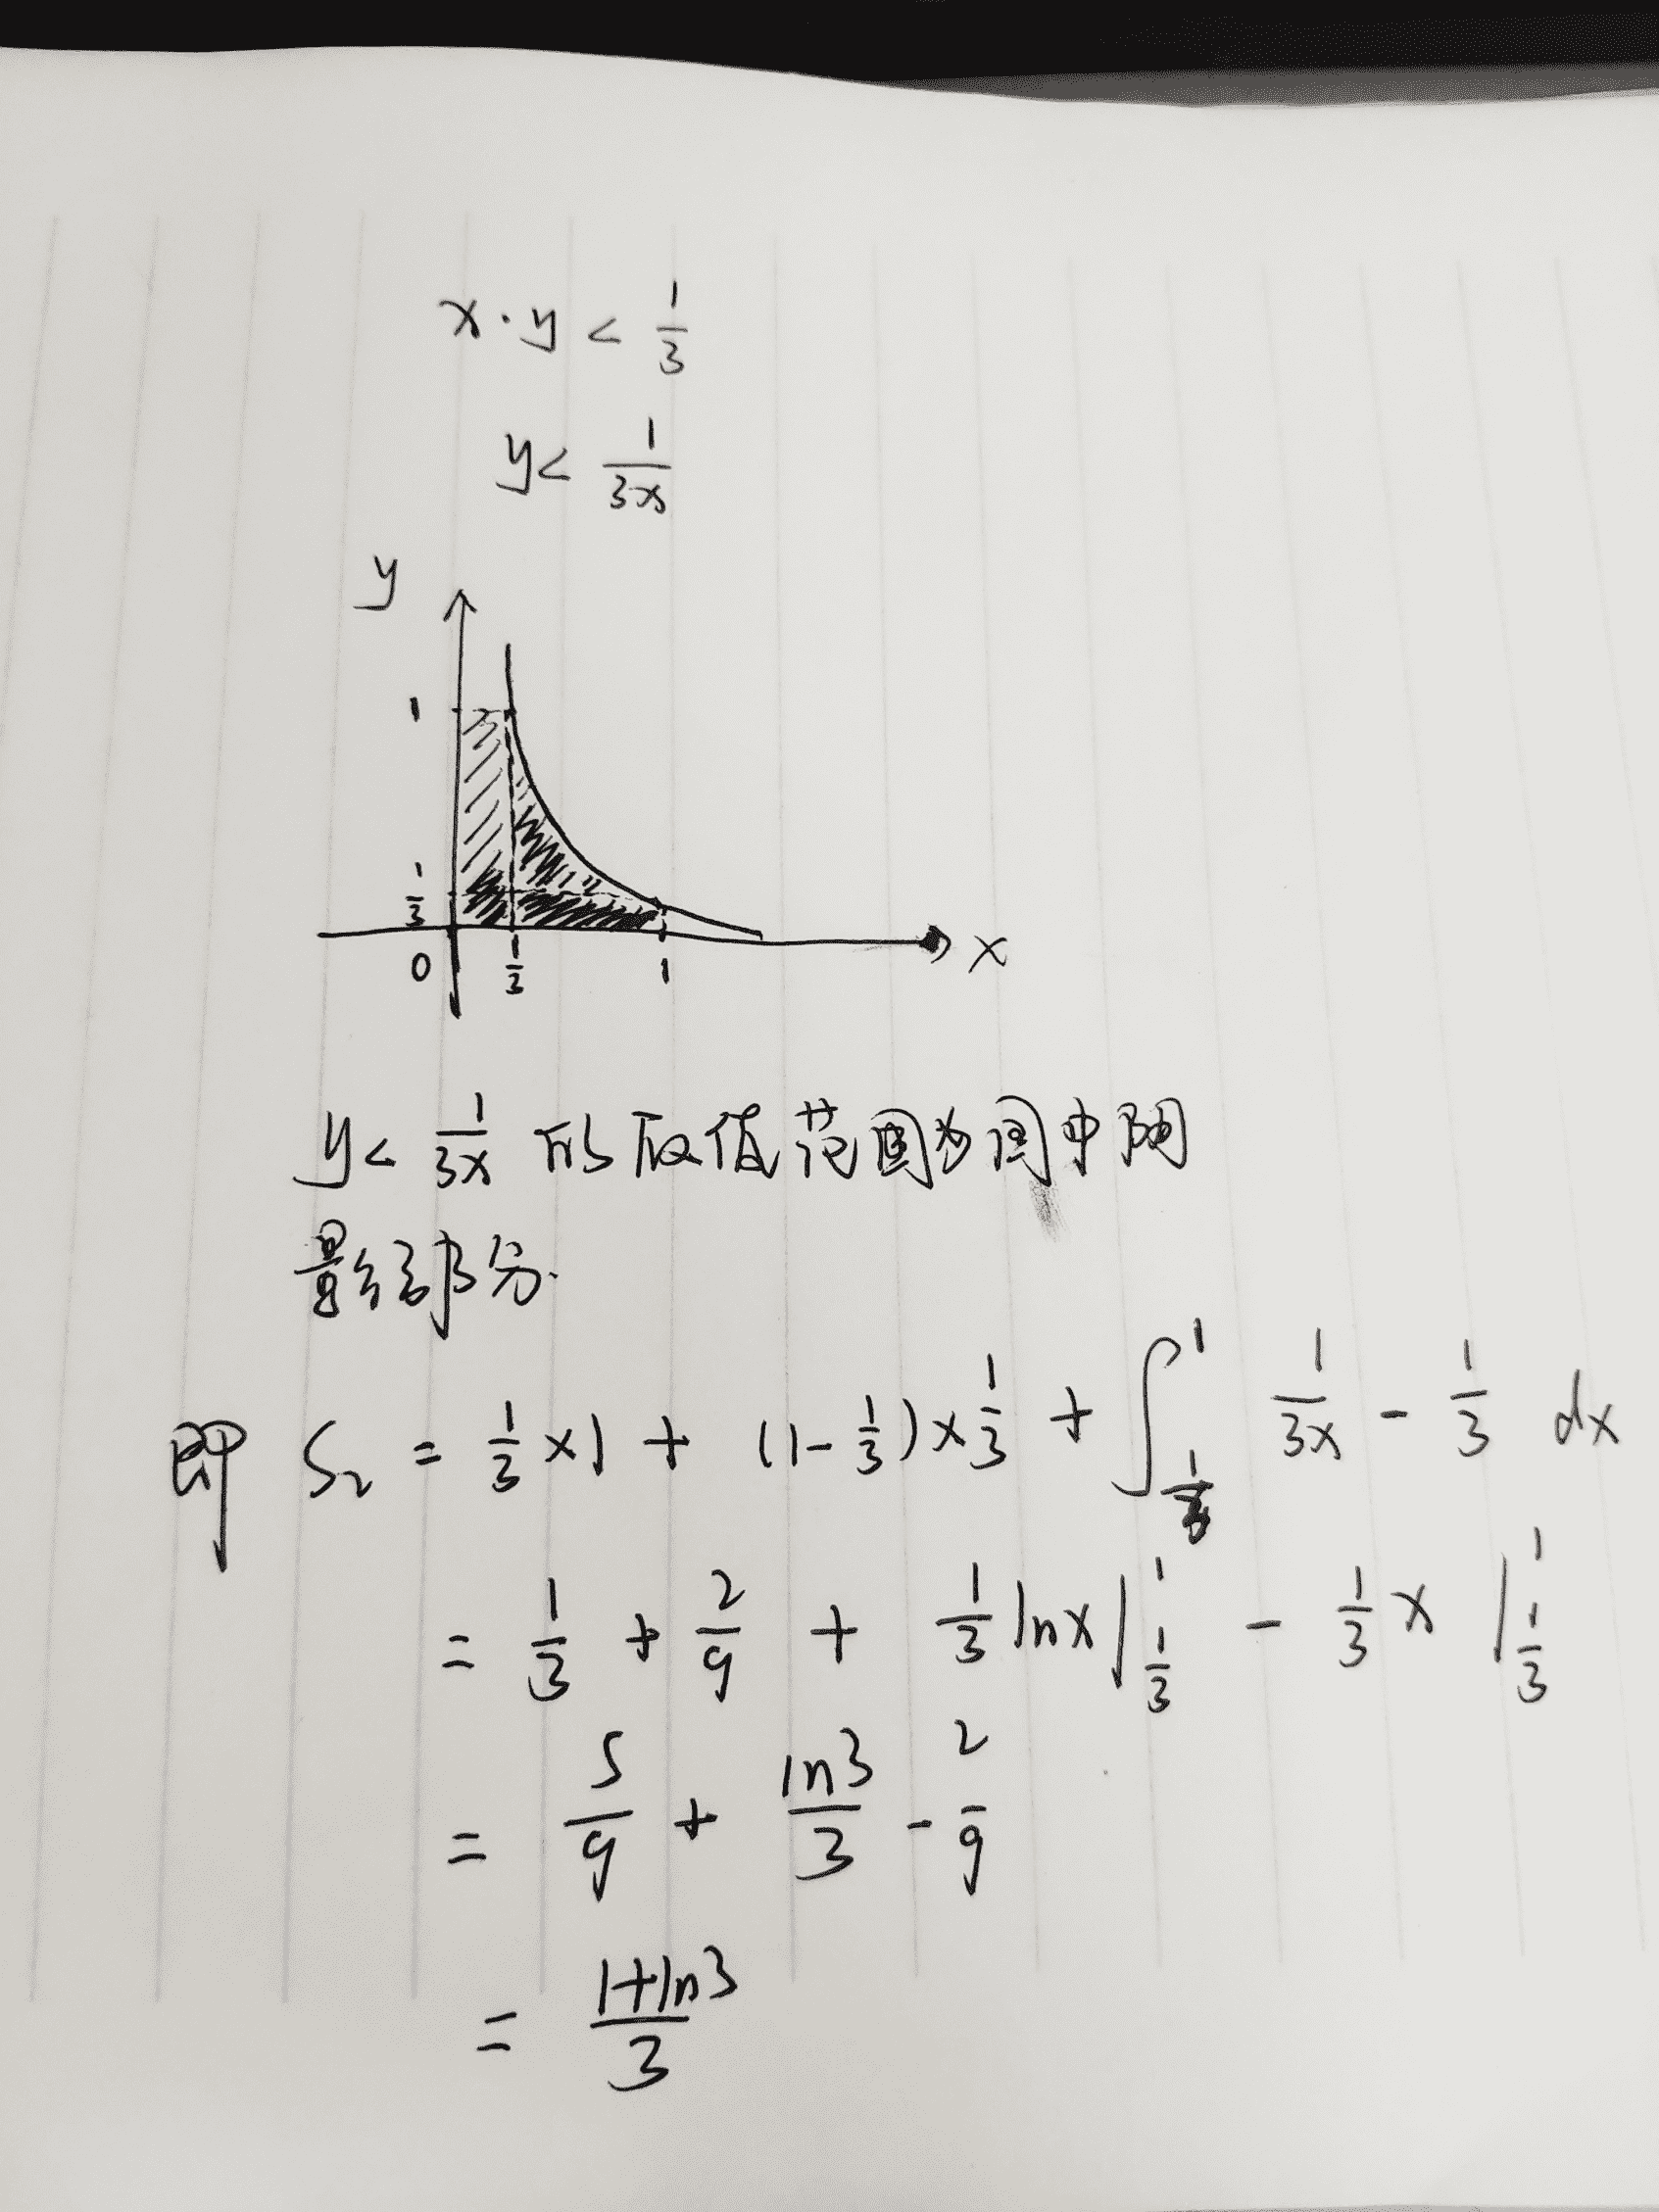 x·y < 1/3
y < 1/(3x)
y
1
1/3
0 1/3 1 x
y < 1/(3x) 的取值范围为图中阴
影部分.
即 S₂ = 1/3 × 1 + (1 - 1/3) × 1/3 + ∫_{1/3}^{1} 1/(3x) - 1/3 dx
= 1/3 + 2/9 + 1/3 lnx |_{1/3}^{1} - 1/3 x |_{1/3}^{1}
= 5/9 + ln3/3 - 2/9
= (1+ln3)/3